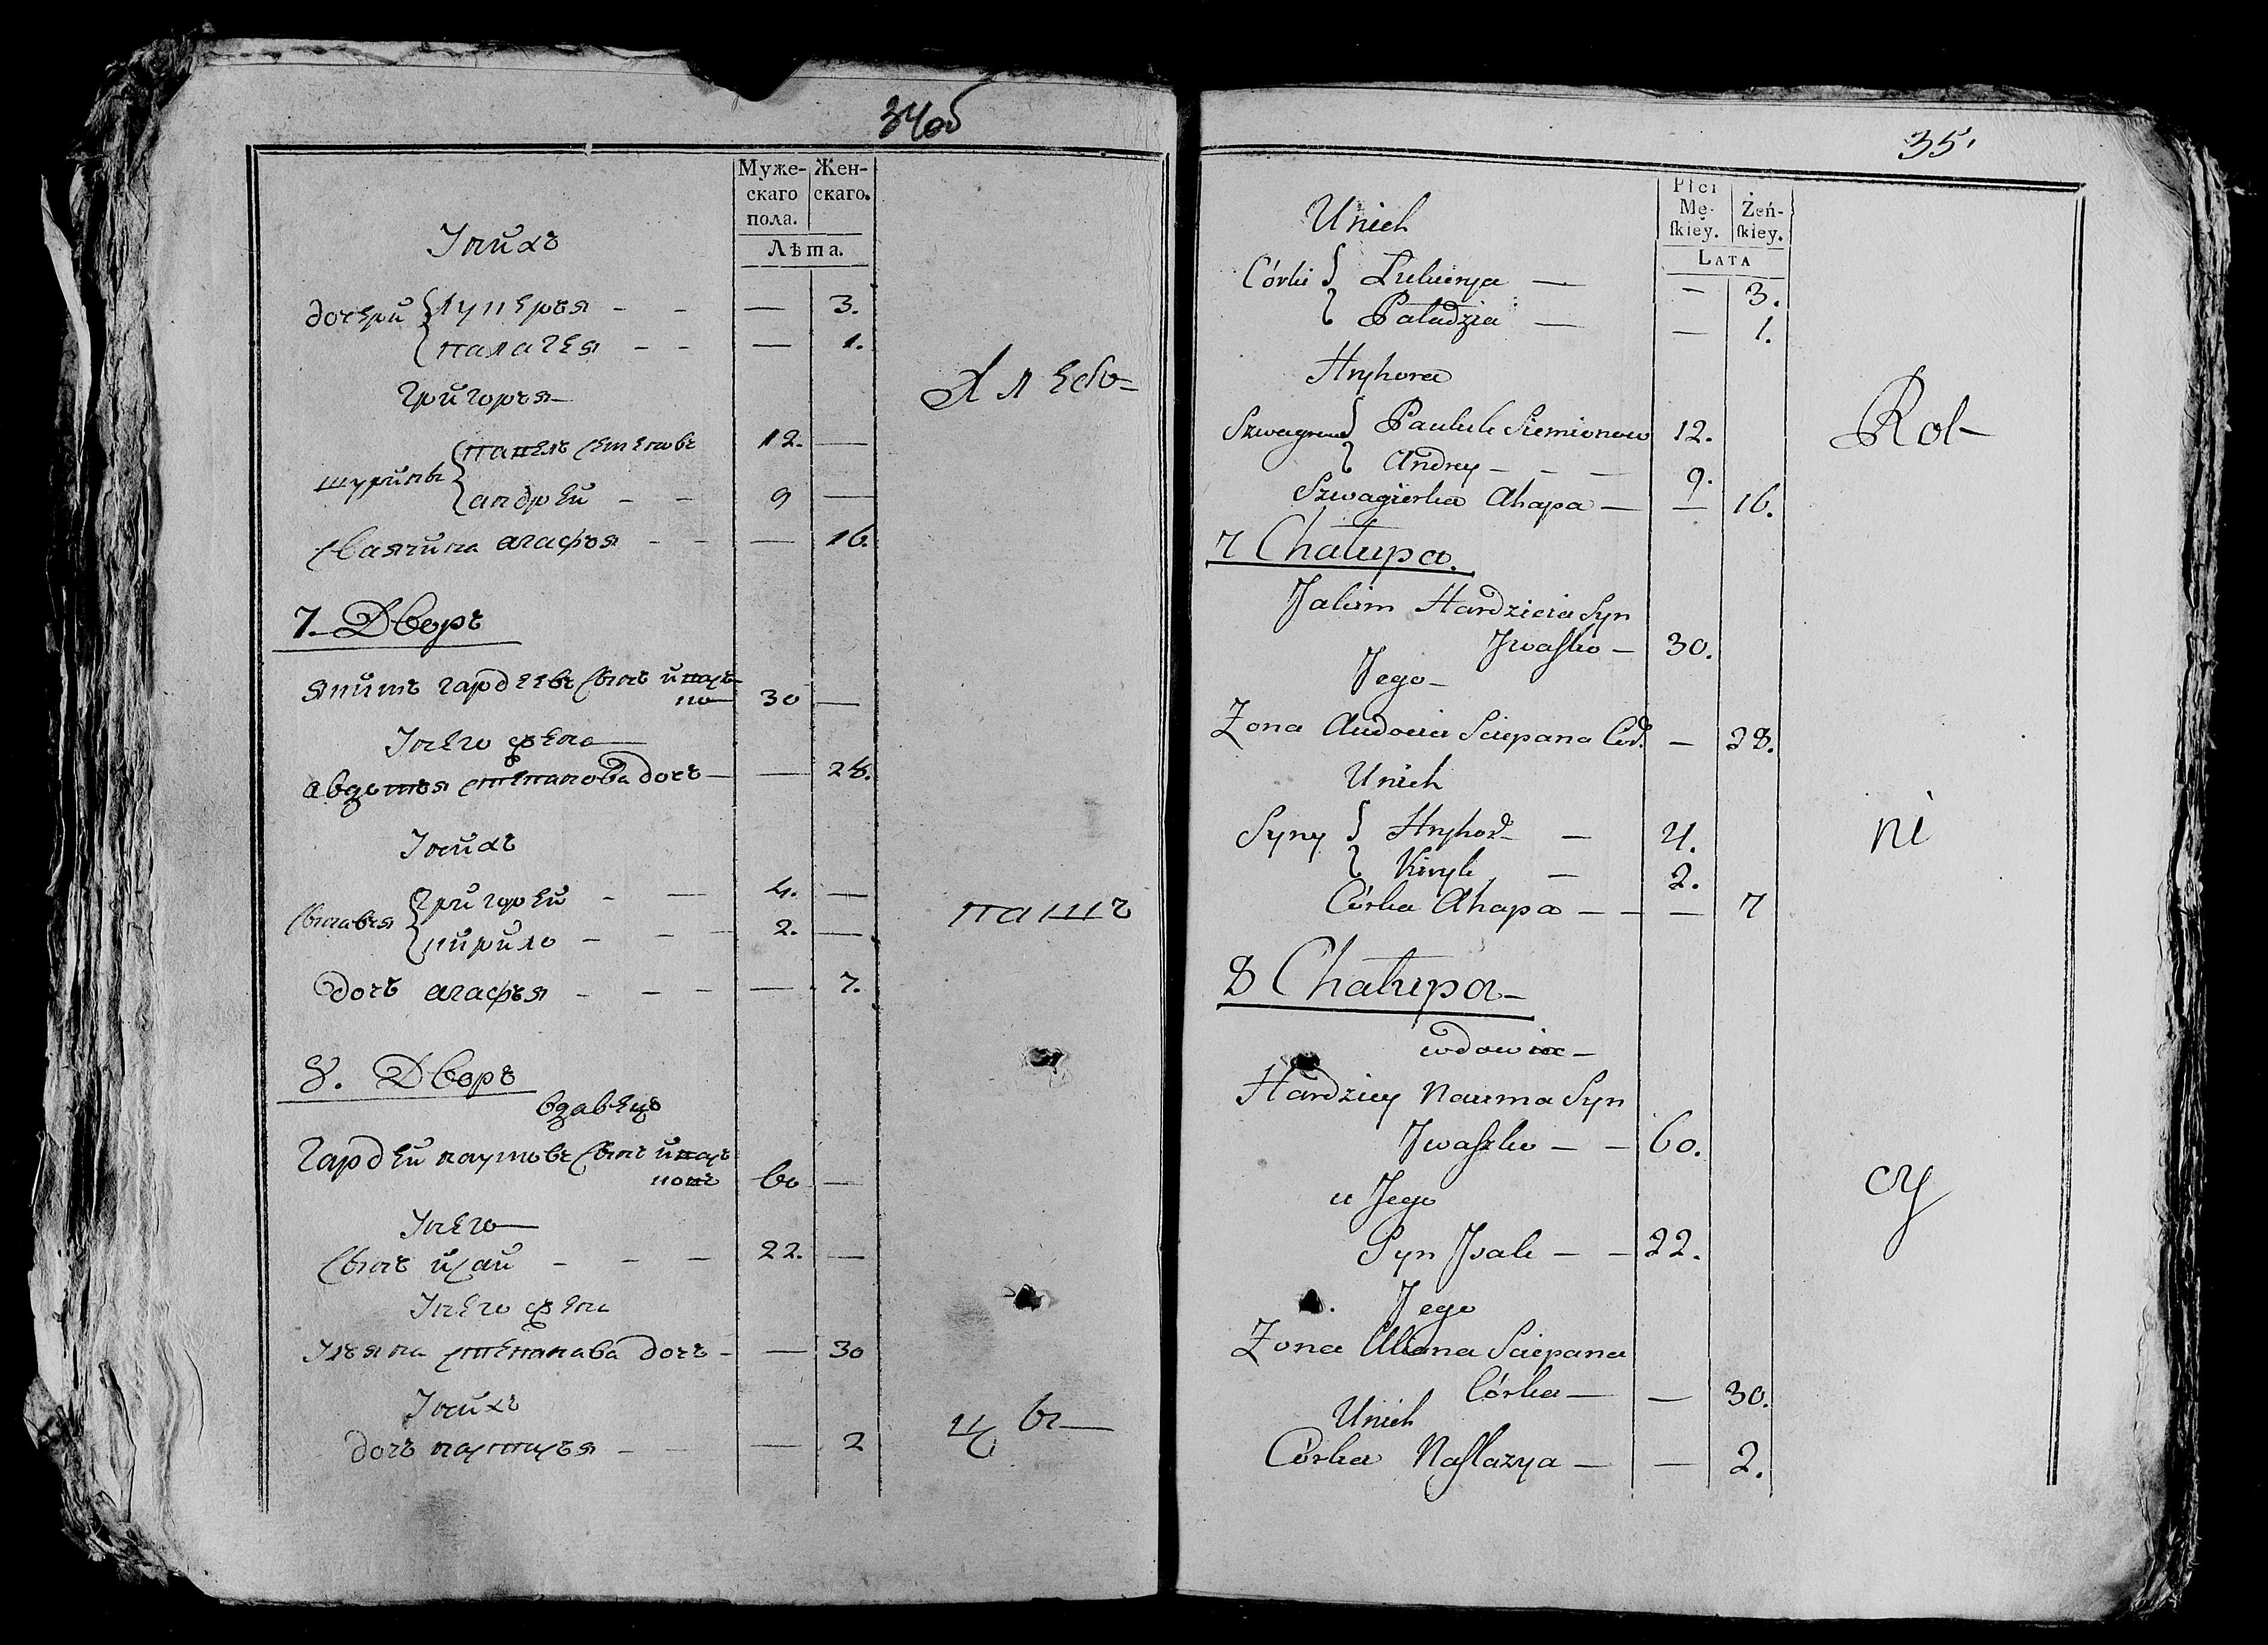 34об
Муже- Жен-
скаго скаго.
пола.
Лѣта.
Уних
дочери Лукерья - - — 3.
палагея - - — 1.
Григорья
Хлебо-
шурины павелъ семеновъ 12. —
андрей - - 9 —
своячина агафья - - — 16.
7. Дворъ
якимъ гардеевъ сынъ ивась-
ко 30 —
Унего жена
авдотья степанова дочь — — 28.
Уних
сыновья григорей - — 4. —
кирило - - - 2. —
пашъ
дочь агафья - - - — 7.
8. Дворъ
вдавецъ
Гардей наумовъ сынъ ивась
60 —
Унего
сынъ исай - - - 22. —
Унего жена
Ульяна степанава дочь - — 30
Уних
дочь настасья - - — 2
цы
35.
Płci
Mę- Żeń-
ſkiey. ſkiey.
LATA
Unich
Córki Łukierya — - 3.
Paładzia — — 1.
Hryhora
Rol-
Paułuk Siemionow 12.
Andrey - - - 9.
Szwagierka Ahapa — — 16.
7 Chałupa.
Jakim Hardzieia Syn
Iwaſko - 30.
Jego
Zona Audocia Sciepana Cor. - 28.
Unich
Syny Hryhor - 4.
ni
Kiryk - 2.
Córka Ahapa - - - 7
8 Chałupa
wdowiec
Hardziey Nauma Syn
Iwaſzko - - 60.
u Jego
cy
Syn Isak - - 22.
Jego
Zona Ullana Sciepana
Córka - — 30.
Unich
Córka Naſtazya - — 2.